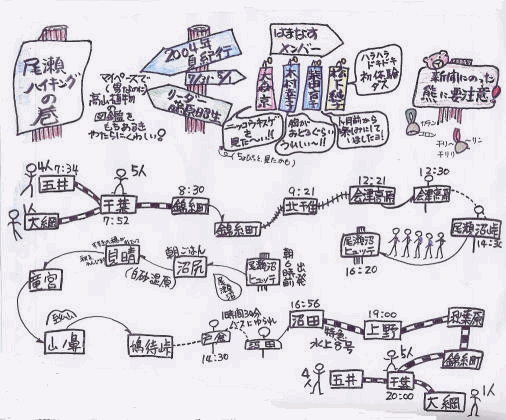 尾瀬
ハイキング
の巻
2004年
夏紀行
7/31~8/1
リーダー
マイペースで
(男なのに)
高山植物
図鑑を
もちあるき
やたらにくわしい。
はまなす
メンバー
ハラハラ
ドキドキ
初体験
デス
ニッコウキスゲ
を見た~い!!
(ちょびっと見たかも)
胸が
おどるぐらい
うれしい~!!
1ヶ月前から
楽しみにして
いました!!
新聞にのった
熊に要注意!
カラン
コロン
チリン
チリリーン
4人 7:34
五井
1人
大網
5人
千葉
7:52
8:30
錦糸町
錦糸町
9:21
北千住
12:21
会津高原
12:30
会津高原
尾瀬沼峠
14:30
尾瀬沼
ヒュッテ
16:20
尾瀬沼
ヒュッテ
朝6時前
出発
尾瀬沼
朝ごはん
沼尻
(白砂湿原)
見晴
竜宮
山ノ鼻
鳩待峠
戸倉
14:30
1時間30分
バスにゆられ
沼田
16:56
沼田
特急
水上8号
19:00
上野
秋葉原
錦糸町
5人
千葉
20:00
4人
五井
大網
1人